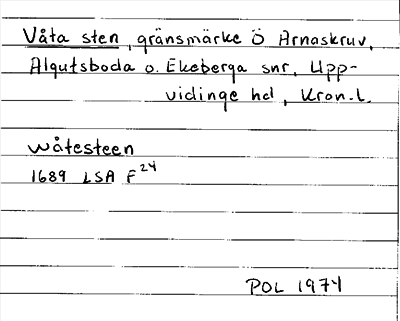 Våta sten, gränsmärke Ö Arnaskruv,
Algutsboda o. Ekeberga snr, Upp-
vidinge hd, Kron.l.
Wåtesteen
1689 LSA F 24
POL 1974